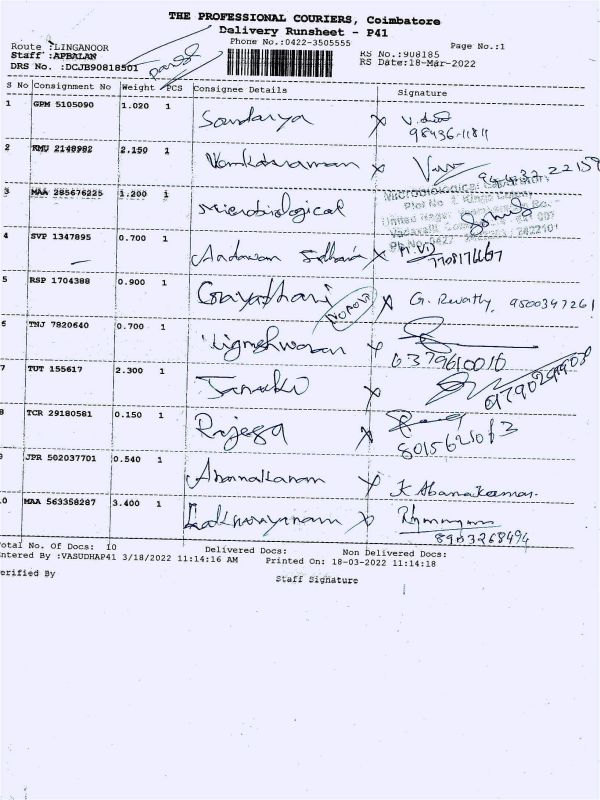 THE PROFESSIONAL COURIERS, Coimbatore
Delivery Runsheet - P41
Phone No.:0422-3505555
Page No.:1
Route :LINGANOOR
Staff :APBALAN
DRS No. :DCJB90818501
RS No.:908185
RS Date:18-Mar-2022
S No Consignment No Weight PCS Consignee Details Signature
1 GPM 5105090 1.020 1 Soundarya
98436-11811
2 RMU 2148982 2.150 1 Venkataraman
3 MAA 285676225 1.200 1 Microbiological
Microbiological Laboratory
4 SVP 1347895 0.700 1 Andavan
5 RSP 1704388 0.900 1 Gayathari G. Revathy, 9500347261
6 TNJ 7820640 0.700 1 Vigneshwaran
6379610010
7 TUT 155617 2.300 1 Janaki
8 TCR 29180581 0.150 1 Rajega
8015625013
JPR 502037701 0.540 1
K Abanakannan.
0 MAA 563358287 3.400 1
8903268494
otal No. Of Docs: 10 Delivered Docs: Non Delivered Docs:
ntered By :VASUDHAP41 3/18/2022 11:14:16 AM Printed On: 18-03-2022 11:14:18
erified By Staff Signature